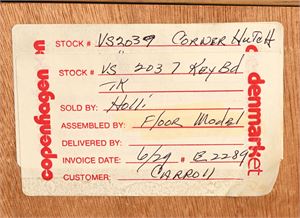 copenhagen
STOCK # VS2039 CORNER HUTCH
"
STOCK # VS 2037 KeyBd
TK
SOLD BY: Holli
ASSEMBLED BY: Floor Model
DELIVERED BY:
INVOICE DATE: 6/29 E 2289
CUSTOMER: CARROll
denmarket